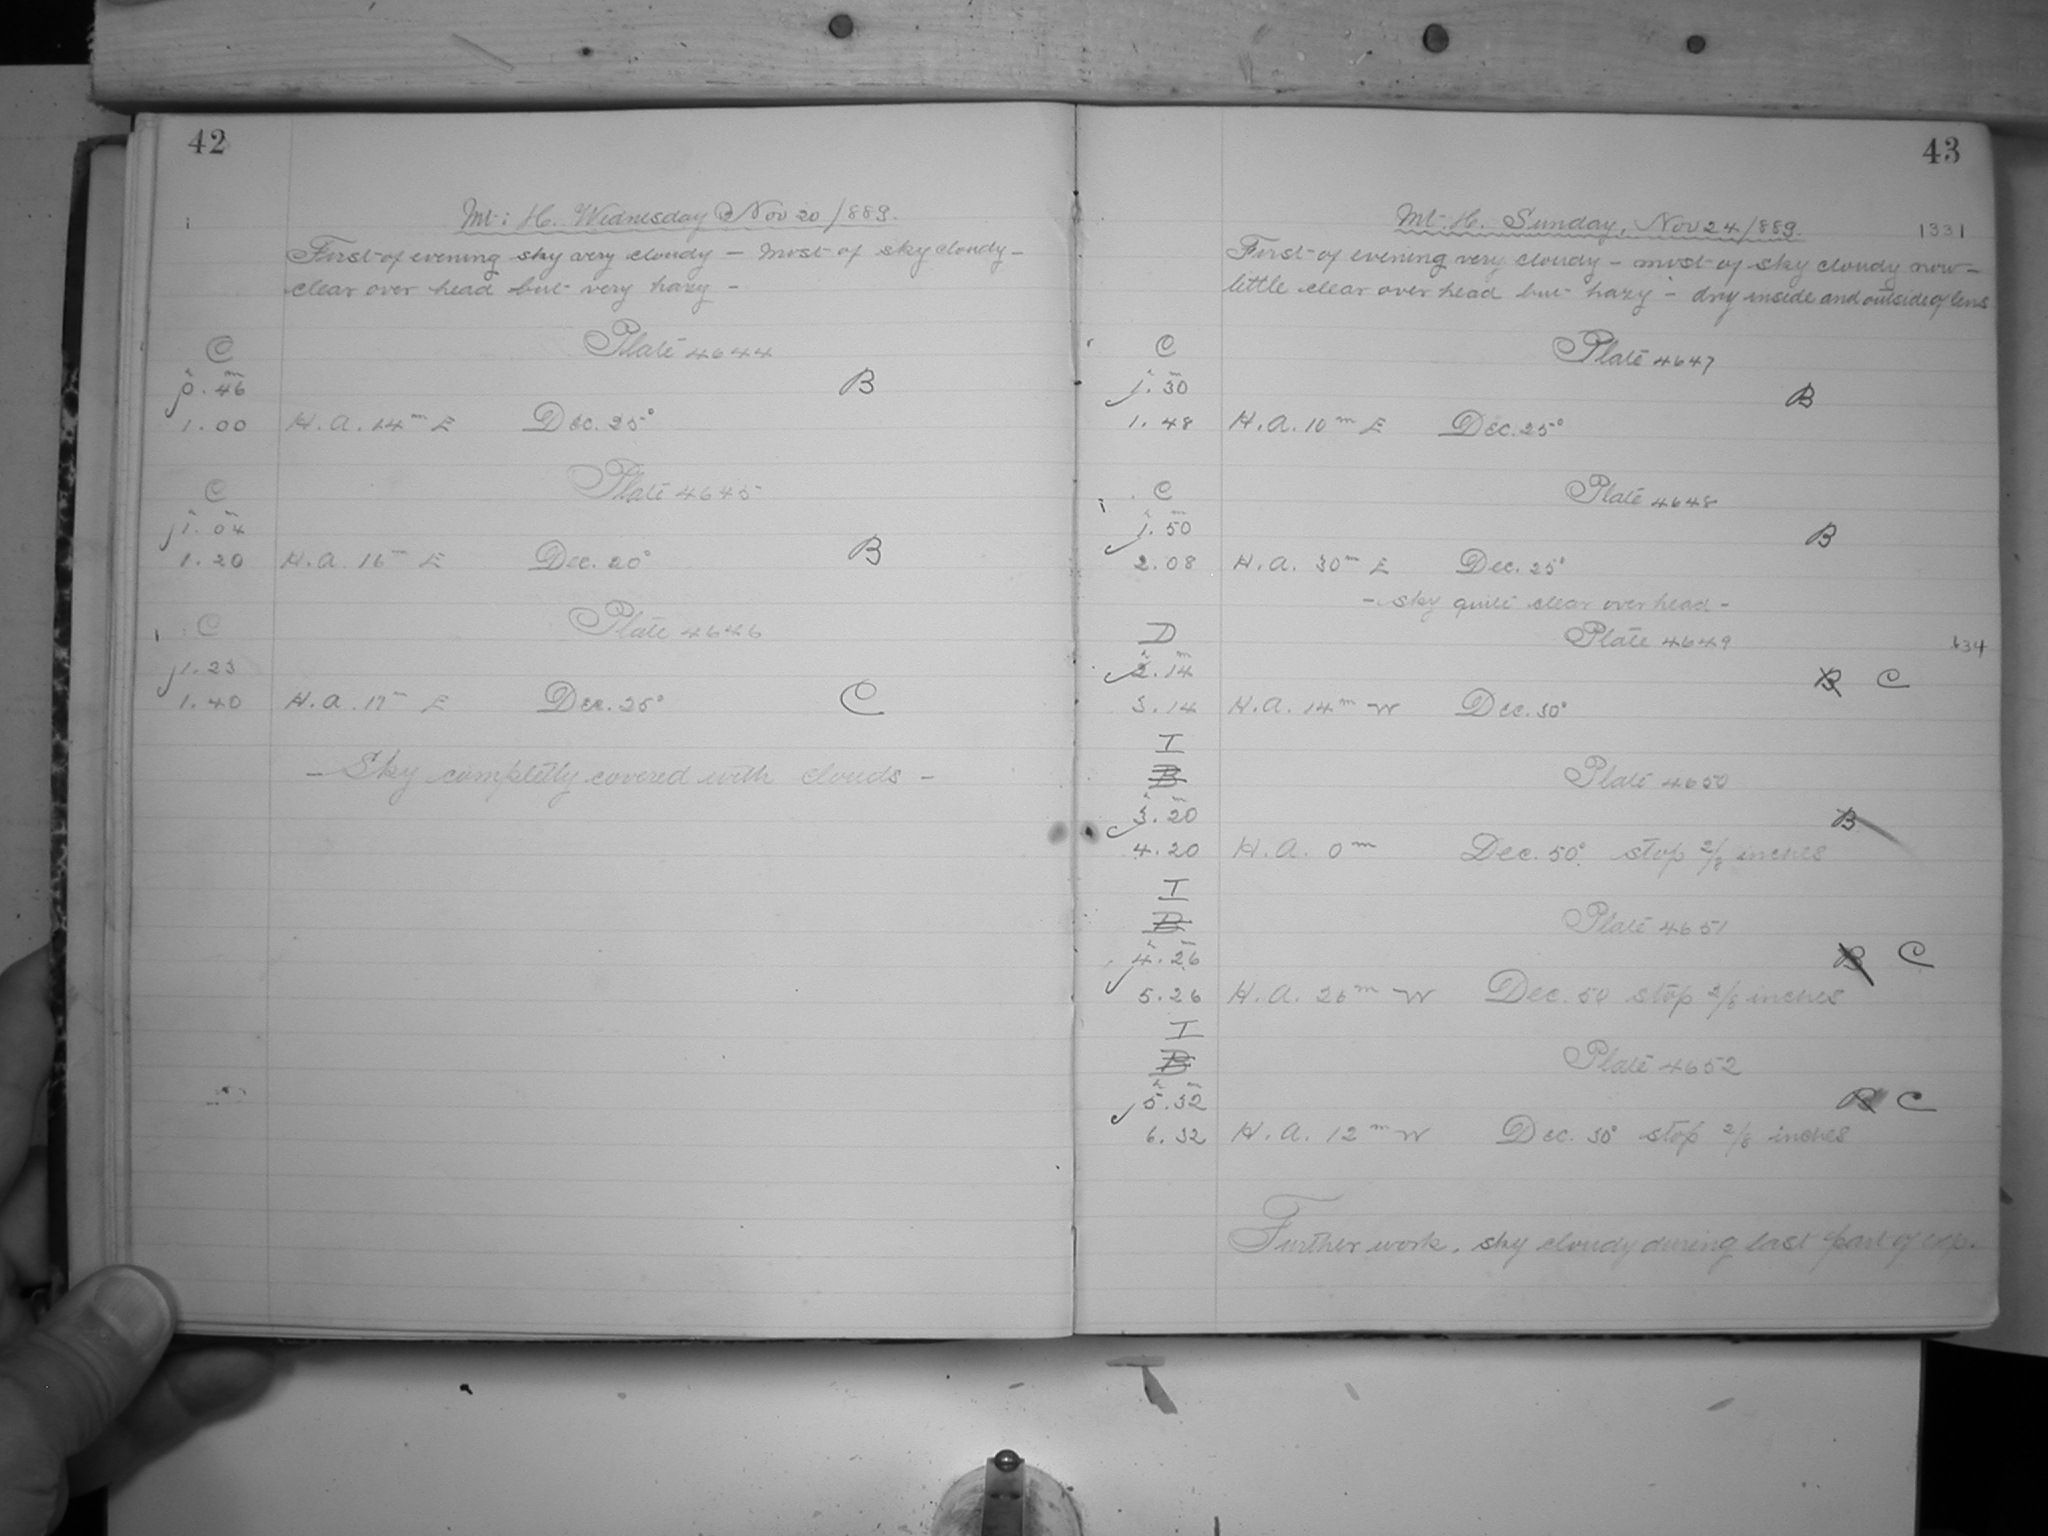 42
Mt. H. Wednesday Nov 20/889.
First of evening sky very cloudy — most of sky cloudy —
clear over head but very hazy —
C Plate 4644
0h.46m B
1.00 H.A. 14m E Dec. 25°
C Plate 4645
1h.04m
1.20 H.A. 16m E Dec. 20° B
C Plate 4646
1.23
1.40 H.A. 17m E Dec. 25° C
— Sky completly covered with clouds —
43
Mt. H. Sunday, Nov 24/889. 1331
First of evening very cloudy — most of sky cloudy now —
little clear over head but hazy — dry inside and outside of lens
C Plate 4647
1h.30m B
1.48 H.A. 10m E Dec. 25°
C Plate 4648
1h.50m B
2.08 H.A. 30m E Dec. 25°
— sky quite clear over head —
D Plate 4649 634
2h.14m B C
3.14 H.A. 14m W Dec. 30°
I
B Plate 4650
3h.20m B
4.20 H.A. 0m Dec. 50° stop 2/8 inches
I
B Plate 4651
4h.26m B C
5.26 H.A. 26m W Dec. 50 stop 2/8 inches
I
B Plate 4652
5h.32m B C
6.32 H.A. 12m W Dec. 30° stop 2/8 inches
Further work, sky cloudy during last part of exp.